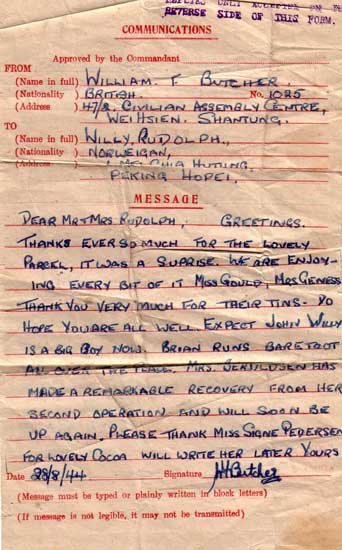 REPLIES ONLY ACCEPTED ON THE
REVERSE SIDE OF THIS FORM.
COMMUNICATIONS
Approved by the Commandant
FROM
(Name in full) WILLIAM. F BUTCHER.
(Nationality ) BRITISH. No. 1025
(Address 47/2. CIVILIAN ASSEMBLY CENTRE,
WEIHSIEN. SHANTUNG.
TO
(Name in full) WILLY, RUDOLPH.,
(Nationality ) NORWEIGAN,
(Address HUTUNG.
PEKING HOPEI,
MESSAGE
DEAR MR & MRS RUDOLPH, GREETINGS.
THANKS EVER SO MUCH FOR THE LOVELY
PARCEL, IT WAS A SUPRISE. WE ARE ENJOY-
ING EVERY BIT OF IT MISS GOULD, MRS GENESS
THANK YOU VERY MUCH FOR THEIR TINS - DO
HOPE YOU ARE ALL WELL. EXPECT JOHN WILLY
IS A BIG BOY NOW. BRIAN RUNS BAREFOOT
ALL OVER THE PLACE. MRS. JERVLDSEN HAS
MADE A REMARKABLE RECOVERY FROM HER
SECOND OPERATION AND WILL SOON BE
UP AGAIN. PLEASE THANK MISS SIGNE PEDERSEN
FOR LOVELY COCOA WILL WRITE HER LATER YOURS
Date 28/8/44 Signature Butcher
(Message must be typed or plainly written in block letters)
(If message is not legible, it may not be transmitted)